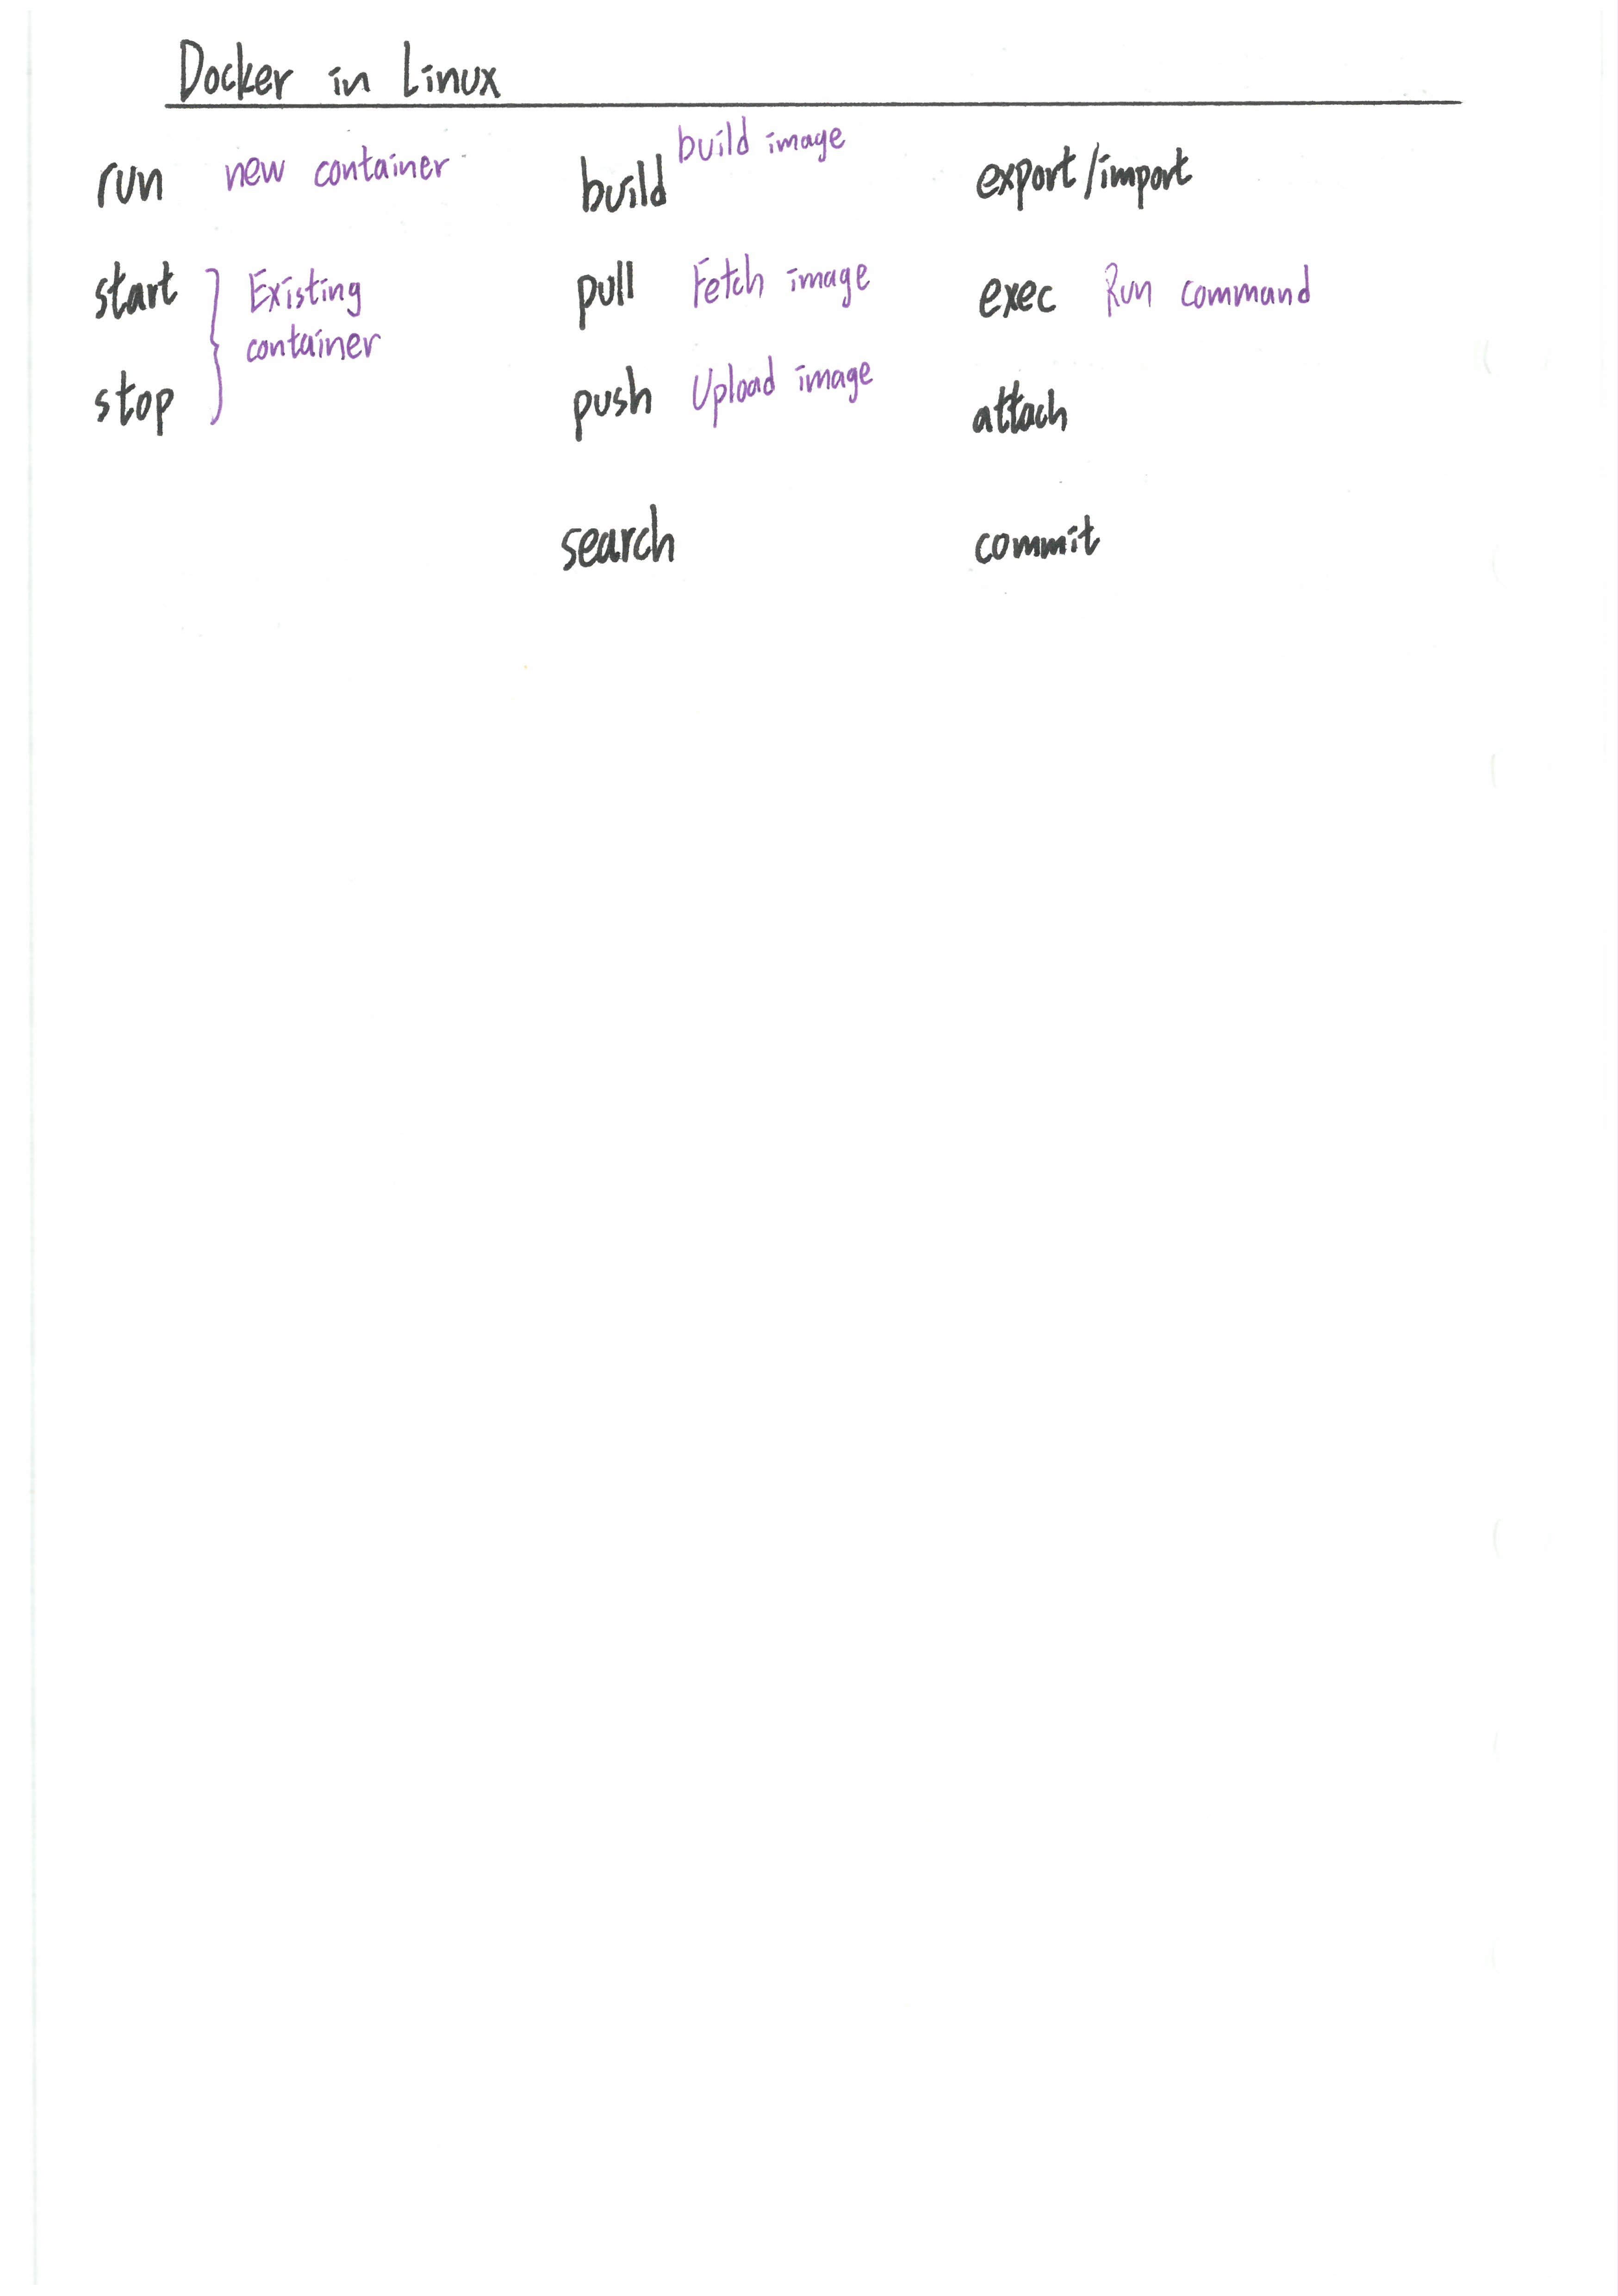 Docker in Linux
run new container
start
stop
Existing
container
build build image
pull Fetch image
push Upload image
search
export/import
exec Run command
attach
commit